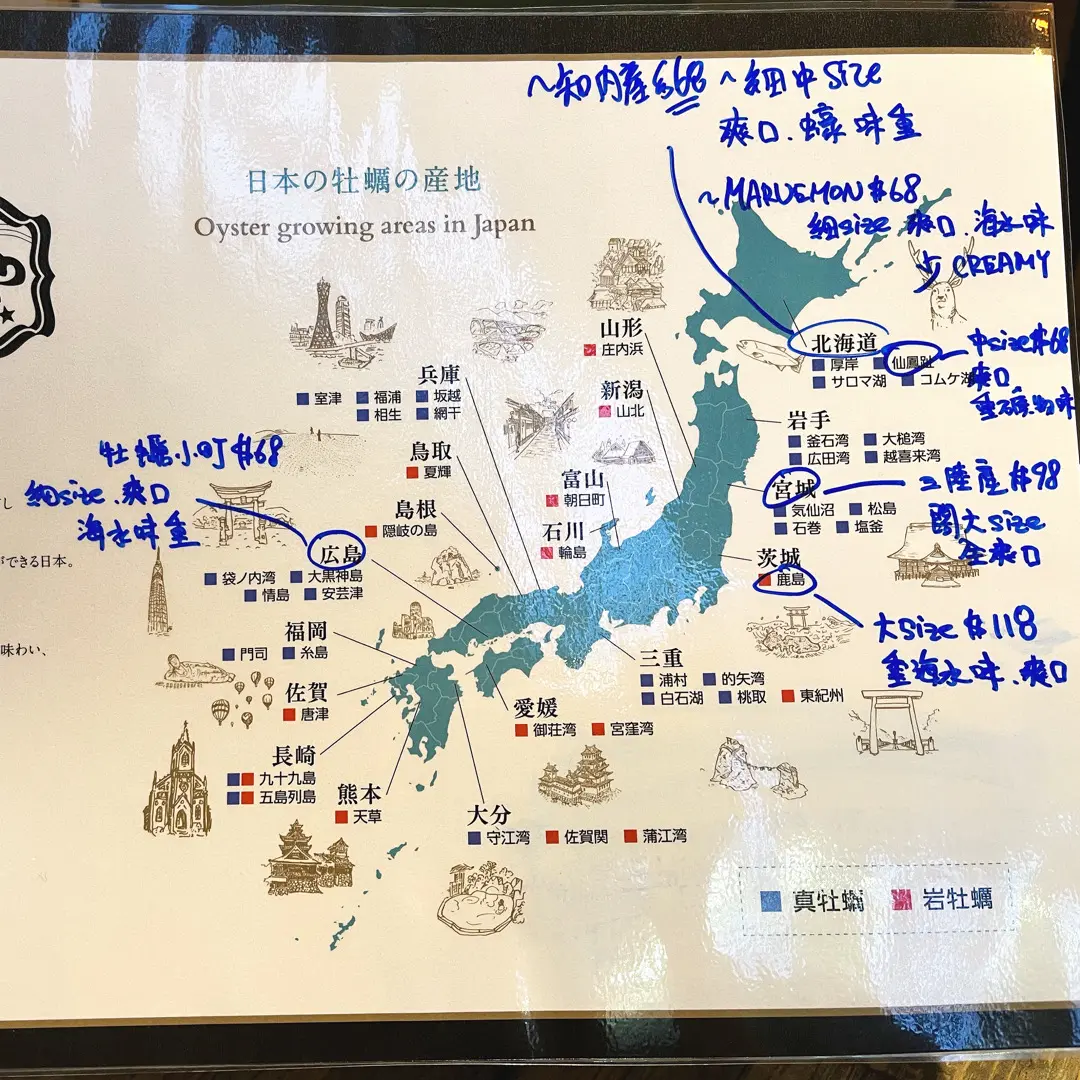 ~知内產$68 ~細中size
爽口.蠔味重
日本の牡蠣の産地
Oyster growing areas in Japan
~MARUEMON $68
細size 爽口.海水味
少CREAMY
山形
庄内浜
北海道
厚岸 仙鳳趾
サロマ湖 コムケ湖
中size $68
爽口
重礦物味
兵庫
室津 福浦 坂越
相生 網干
新潟
山北
岩手
釜石湾 大槌湾
広田湾 越喜来湾
牡蠣小町 $68
細size.爽口
海水味重
鳥取
夏輝
富山
朝日町
宮城
気仙沼 松島
石巻 塩釜
三陸産 $98
開大size
爽口
島根
隠岐の島
石川
輪島
し
ができる日本。
広島
袋ノ内湾 大黒神島
情島 安芸津
茨城
鹿島
大size $118
重海水味.爽口
福岡
門司 糸島
味わい、
三重
浦村 的矢湾
白石湖 桃取 東紀州
佐賀
唐津
愛媛
御荘湾 宮窪湾
長崎
九十九島
五島列島
熊本
天草
大分
守江湾 佐賀関 蒲江湾
真牡蠣 岩牡蠣